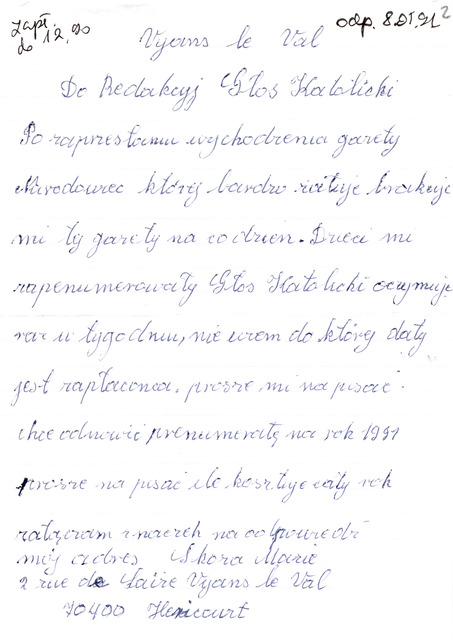 zapł. do 12.90
odp. 8.01.91
2
Vyans le Val
Do Redakcyj Głos Katolicki
Po zaprzestaniu wychodzenia gazety
Narodowiec której bardzo żałuje brakuje
mi ty gazety na codzien. Dzieci mi
zapenumerowały Głos Katolicki otzymuję
raz w tygodniu, nie wiem do której daty
jest zapłaconca. prosze mi napisać.
chce odnowić prenumeratę na rok 1991
prosze na pisać ile kosztuje cały rok
załączam znaczek na odpowiedź
mój adres Skora Marie
2 rue de Laire Vyans le Val
70400 Hericourt